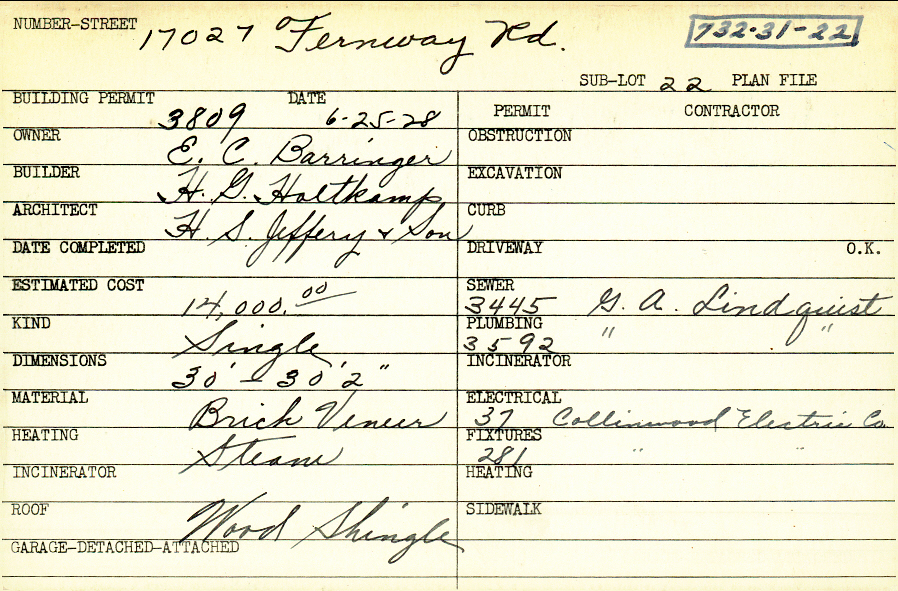 NUMBER-STREET 17027 Fernway Rd. 732-31-22
SUB-LOT 22 PLAN FILE
BUILDING PERMIT 3809 DATE 6-25-28
PERMIT CONTRACTOR
OWNER E. C. Barringer
OBSTRUCTION
BUILDER H. G. Holtkamp
EXCAVATION
ARCHITECT H. S. Jeffery & Son
CURB
DATE COMPLETED
DRIVEWAY O.K.
ESTIMATED COST 14,000.00
SEWER 3445 G. A. Lindquist
KIND Single
PLUMBING 3592 " "
DIMENSIONS 30' - 30'2"
INCINERATOR
MATERIAL Brick Veneer
ELECTRICAL 37 Collinwood Electric Co.
HEATING Steam
FIXTURES 281 " "
INCINERATOR
HEATING
ROOF Wood Shingle
SIDEWALK
GARAGE-DETACHED-ATTACHED